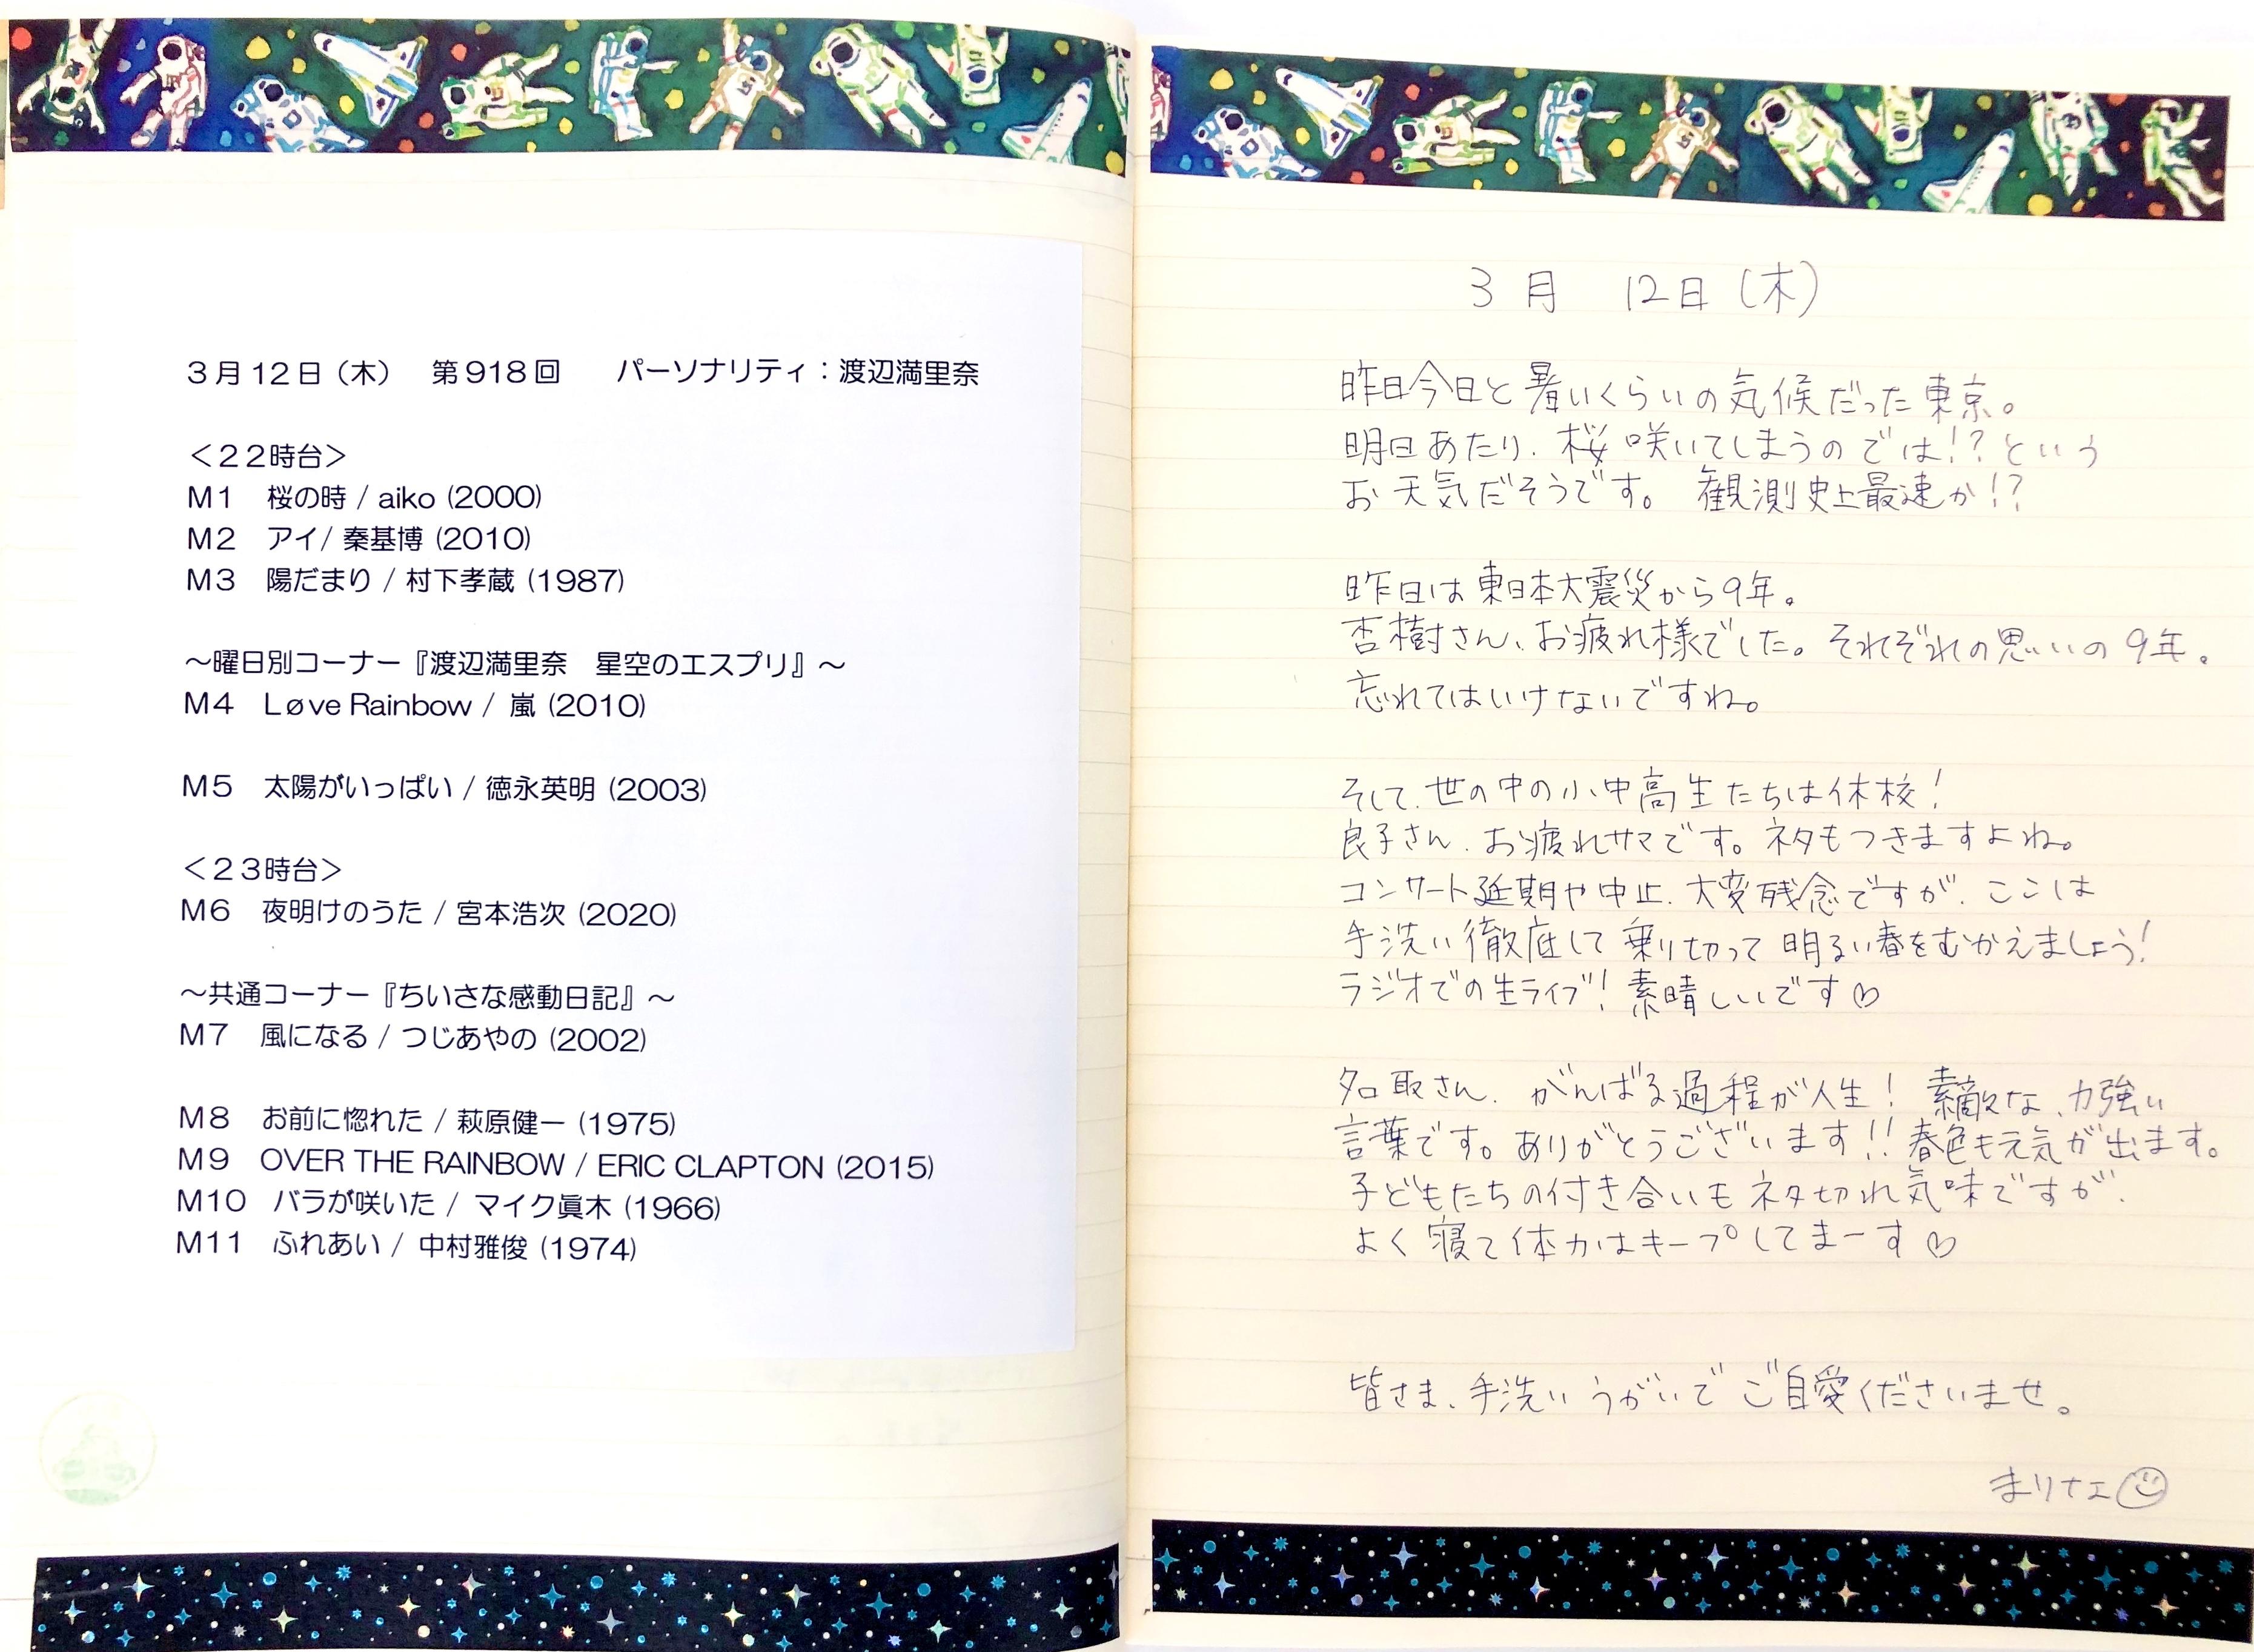 3月12日（木）　第918回　　パーソナリティ：渡辺満里奈
＜22時台＞
M1　桜の時 / aiko (2000)
M2　アイ/ 秦基博 (2010)
M3　陽だまり / 村下孝蔵 (1987)
～曜日別コーナー『渡辺満里奈　星空のエスプリ』～
M4　Løve Rainbow / 嵐 (2010)
M5　太陽がいっぱい / 徳永英明 (2003)
＜23時台＞
M6　夜明けのうた / 宮本浩次 (2020)
～共通コーナー『ちいさな感動日記』～
M7　風になる / つじあやの (2002)
M8　お前に惚れた / 萩原健一 (1975)
M9　OVER THE RAINBOW / ERIC CLAPTON (2015)
M10　バラが咲いた / マイク眞木 (1966)
M11　ふれあい / 中村雅俊 (1974)
3月　12日（木）
昨日今日と暑いくらいの気候だった東京。
明日あたり、桜咲いてしまうのでは!?という
お天気だそうです。観測史上最速か!?
昨日は東日本大震災から9年。
杏樹さん、お疲れ様でした。それぞれの思いの9年。
忘れてはいけないですね。
そして、世の中の小中高生たちは休校！
良子さん、お疲れサマです。ネタもつきますよね。
コンサート延期や中止、大変残念ですが、ここは
手洗い徹底して乗り切って明るい春をむかえましょう！
ラジオでの生ライブ！素晴しいです♡
名取さん、がんばる過程が人生！素敵な、力強い
言葉です。ありがとうございます!!春色も元気が出ます。
子どもたちの付き合いもネタ切れ気味ですが、
よく寝て体力はキープしてまーす♡
皆さま、手洗いうがいでご自愛くださいませ。
まりナ